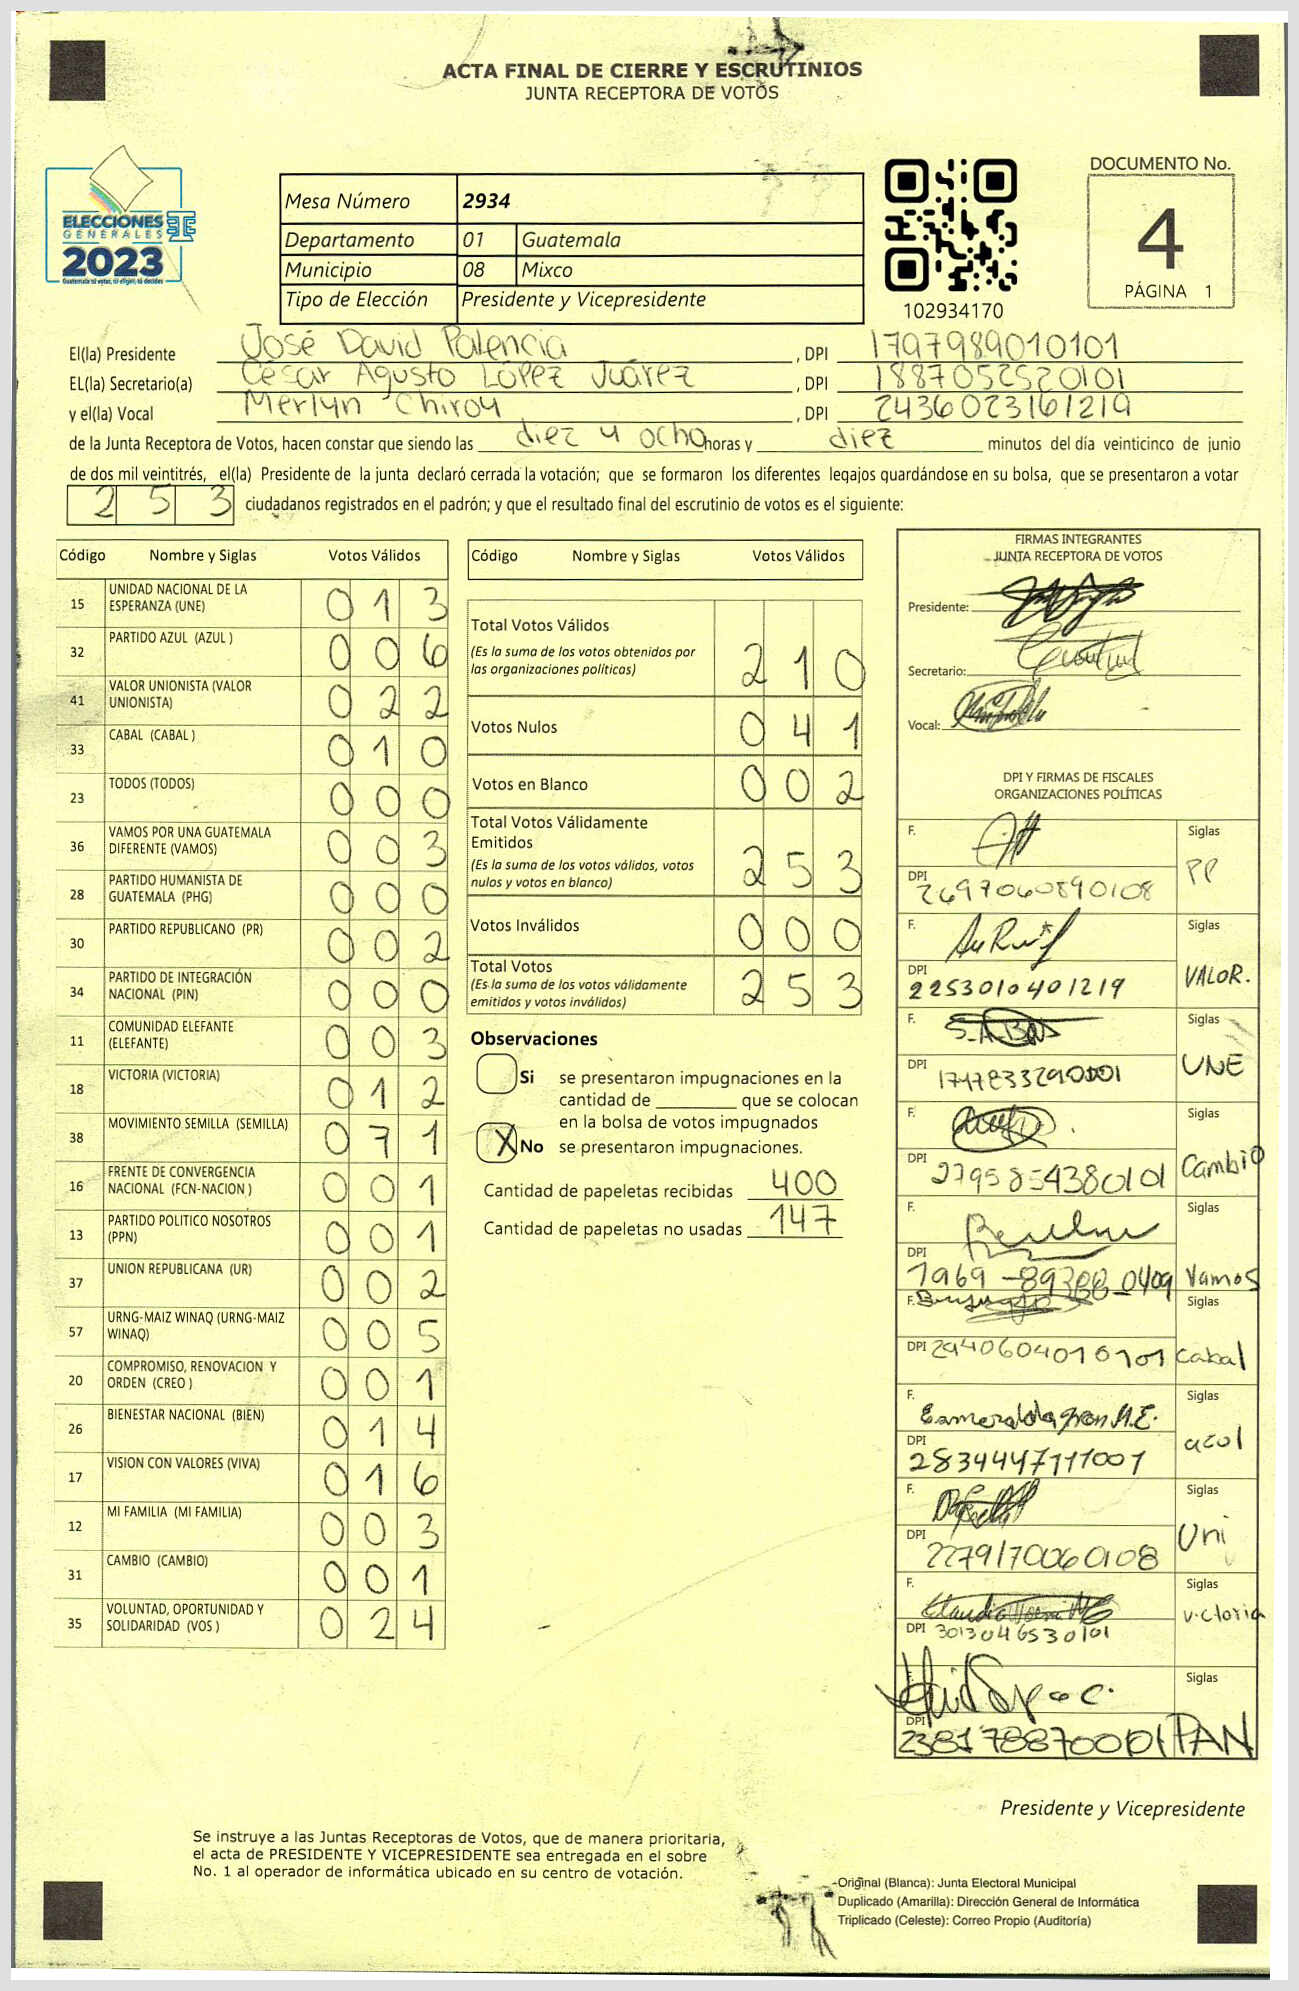 ACTA FINAL DE CIERRE Y ESCRUTINIOS
JUNTA RECEPTORA DE VOTOS
ELECCIONES
GENERALES
2023
Guatemala tú votas, tú eliges, tú decides
Mesa Número 2934
Departamento 01 Guatemala
Municipio 08 Mixco
Tipo de Elección Presidente y Vicepresidente
102934170
DOCUMENTO No.
4
PÁGINA 1
El(la) Presidente José David Palencia , DPI 1797989010101
EL(la) Secretario(a) César Agusto López Juárez , DPI 1887052520101
y el(la) Vocal Merlyn Chiroy , DPI 2436023161219
de la Junta Receptora de Votos, hacen constar que siendo las diez y ocho horas y diez minutos del día veinticinco de junio
de dos mil veintitrés, el(la) Presidente de la junta declaró cerrada la votación; que se formaron los diferentes legajos guardándose en su bolsa, que se presentaron a votar
253 ciudadanos registrados en el padrón; y que el resultado final del escrutinio de votos es el siguiente:
Código Nombre y Siglas Votos Válidos
15 UNIDAD NACIONAL DE LA ESPERANZA (UNE) 013
32 PARTIDO AZUL (AZUL ) 006
41 VALOR UNIONISTA (VALOR UNIONISTA) 022
33 CABAL (CABAL ) 010
23 TODOS (TODOS) 000
36 VAMOS POR UNA GUATEMALA DIFERENTE (VAMOS) 003
28 PARTIDO HUMANISTA DE GUATEMALA (PHG) 000
30 PARTIDO REPUBLICANO (PR) 002
34 PARTIDO DE INTEGRACIÓN NACIONAL (PIN) 000
11 COMUNIDAD ELEFANTE (ELEFANTE) 003
18 VICTORIA (VICTORIA) 012
38 MOVIMIENTO SEMILLA (SEMILLA) 071
16 FRENTE DE CONVERGENCIA NACIONAL (FCN-NACION ) 001
13 PARTIDO POLITICO NOSOTROS (PPN) 001
37 UNION REPUBLICANA (UR) 002
57 URNG-MAIZ WINAQ (URNG-MAIZ WINAQ) 005
20 COMPROMISO, RENOVACION Y ORDEN (CREO ) 001
26 BIENESTAR NACIONAL (BIEN) 014
17 VISION CON VALORES (VIVA) 016
12 MI FAMILIA (MI FAMILIA) 003
31 CAMBIO (CAMBIO) 001
35 VOLUNTAD, OPORTUNIDAD Y SOLIDARIDAD (VOS ) 024
Código Nombre y Siglas Votos Válidos
Total Votos Válidos 210
(Es la suma de los votos obtenidos por
las organizaciones políticas)
Votos Nulos 041
Votos en Blanco 002
Total Votos Válidamente
Emitidos 253
(Es la suma de los votos válidos, votos
nulos y votos en blanco)
Votos Inválidos 000
Total Votos 253
(Es la suma de los votos válidamente
emitidos y votos inválidos)
Observaciones
Si se presentaron impugnaciones en la
cantidad de ________ que se colocan
en la bolsa de votos impugnados
X No se presentaron impugnaciones.
Cantidad de papeletas recibidas 400
Cantidad de papeletas no usadas 147
FIRMAS INTEGRANTES
JUNTA RECEPTORA DE VOTOS
Presidente:
Secretario:
Vocal:
DPI Y FIRMAS DE FISCALES
ORGANIZACIONES POLÍTICAS
F. Siglas PP
DPI 2697060890108
F. Siglas VALOR.
DPI 2253010401219
F. Siglas UNE
DPI
F. Siglas Cambio
DPI 2795854380101
F. Siglas Vamos
DPI
F. Siglas Cabal
DPI
F. Esmeralda Siglas azul
DPI 2834447111001
F. Siglas Uni
DPI 2279170060108
F. Claudia Siglas Victoria
DPI 3013046530101
F. Siglas PAN
DPI
Presidente y Vicepresidente
Se instruye a las Juntas Receptoras de Votos, que de manera prioritaria,
el acta de PRESIDENTE Y VICEPRESIDENTE sea entregada en el sobre
No. 1 al operador de informática ubicado en su centro de votación.
Original (Blanca): Junta Electoral Municipal
Duplicado (Amarilla): Dirección General de Informática
Triplicado (Celeste): Correo Propio (Auditoría)